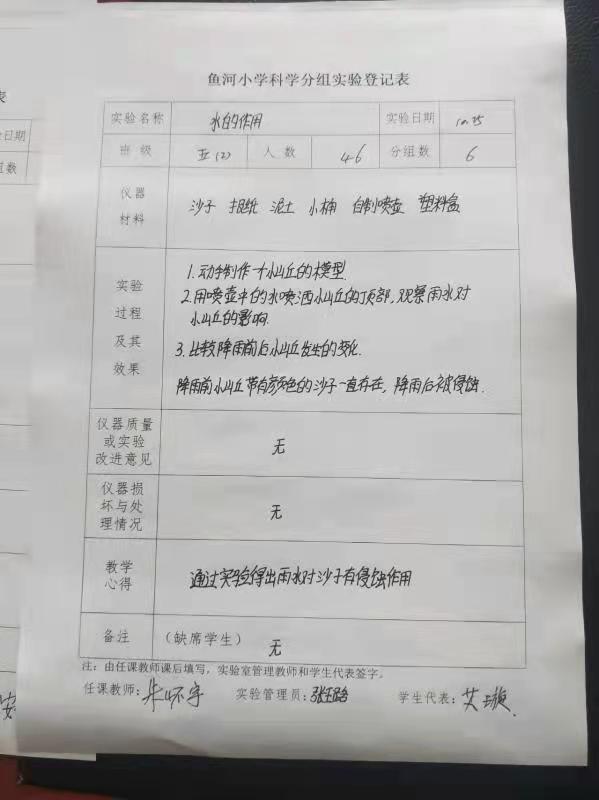 鱼河小学科学分组实验登记表
实验名称 水的作用 实验日期 10.25
班级 五(2) 人数 46 分组数 6
仪器
材料
沙子 报纸 泥土 小桶 自制喷壶 塑料盒
实验
过程
及其
效果
1.动手制作一个小山丘的模型.
2.用喷壶中的水喷洒小山丘的顶部,观察雨水对
小山丘的影响.
3.比较降雨前后小山丘发生的变化.
降雨前小山丘带有颜色的沙子一直存在,降雨后被侵蚀.
仪器质量
或实验
改进意见
无
仪器损
坏与处
理情况
无
教学
心得
通过实验得出雨水对沙子有侵蚀作用
备注 (缺席学生) 无
注:由任课教师课后填写,实验室管理教师和学生代表签字。
任课教师: 朱怀宇 实验管理员: 学生代表: 艾璇
表
验日期
组数